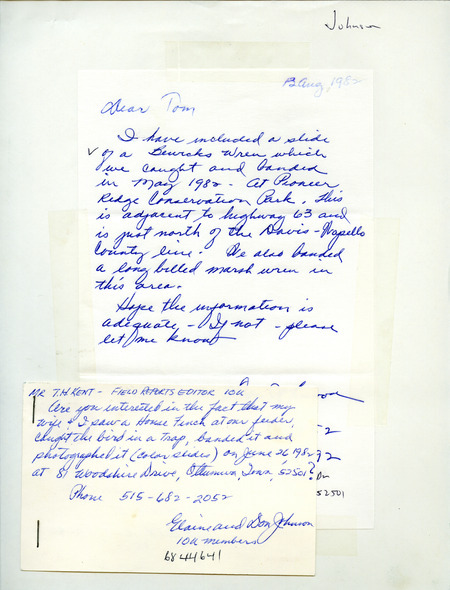 Johnson
12 Aug, 1982
Dear Tom
I have included a slide
of a Bewicks Wren which
we caught and banded
in May 1982 - at Pioneer
Ridge Conservation Park. This
is adjacent to highway 63 and
is just north of the Davis - Wapello
County line. We also banded
a long billed marsh wren in
this area.
Hope the information is
adequate - If not - please
let me know
MR T.H. KENT - FIELD REPORTS EDITOR IOU
Are you interested in the fact that my
wife & I saw a House Finch at our feeder,
caught the bird in a trap, banded it and
photographed it (color slides) on June 26 1982
at 81 Woodshire Drive, Ottumwa Iowa, 52501?
Phone 515-682-2052
Elaine and Don Johnson
IOU members
6844641
52501